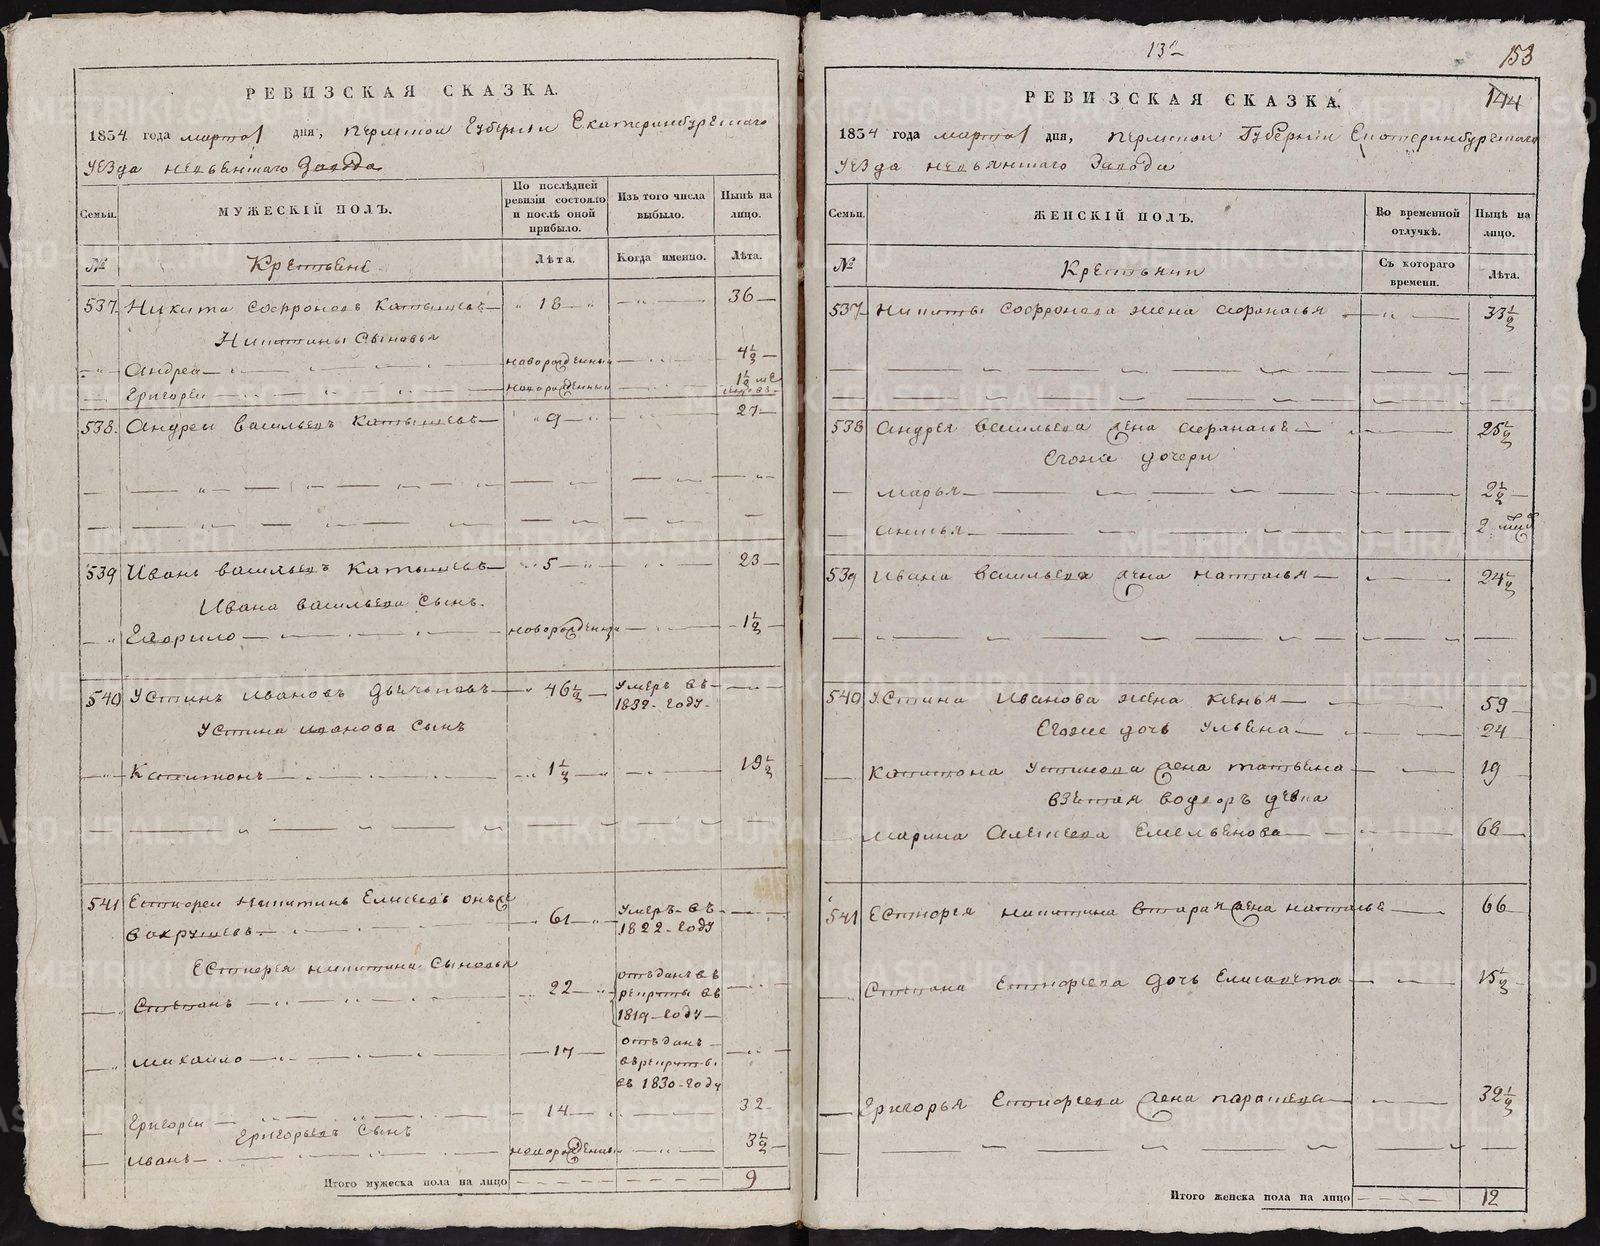 РЕВИЗСКАЯ СКАЗКА.
1834 года марта 1 дня, Пермской Губернии Екатеринбургскаго
уезда невьянскаго Завода
Семьи.
МУЖЕСКІЙ ПОЛЪ.
По послѣдней ревизіи состояло и послѣ оной прибыло.
Изъ того числа выбыло.
Нынѣ на лицо.
№
Крестьяне
Лѣта.
Когда именно.
Лѣта.
537 Никита Софроновъ Катышевъ 18 36
Никитины Сыновья
Андрей новорожденный 4½
Григорей новорожденный
538. Андрей васильевъ Катышевъ 9 27
539 Иванъ васильевъ Катышевъ 5 23
Ивана васильева Сынъ.
новорожденный 1½
540 Устинъ Ивановъ 46½ Умеръ въ
1832 году
Устина иванова Сынъ
Капитонъ 1½ 19½
541 Никитинъ Елисеевъ онъже
вакрушевъ. 61 Умеръ въ
1822 году
никитина Сыновья
Степанъ 22 отъданъ въ
рекруты въ
1819 году
Михайло 17 отъданъ
въ рекруты
въ 1830 году
Григорей 14 32
Григорьевъ Сынъ
Иванъ новорожденный 3½
Итого мужеска пола на лицо 9
13
153
144
РЕВИЗСКАЯ СКАЗКА.
1834 года марта 1 дня, Пермской Губернии Екатеринбургскаго
уезда невьянскаго Завода
Семьи.
ЖЕНСКІЙ ПОЛЪ.
Во временной отлучкѣ.
Нынѣ на лицо.
№
Крестьянки
Съ котораго времени.
Лѣта.
537 Никиты Софронова жена афанасья 33½
538 Андрея васильева жена афанасье 25½
Егоже дочери
марья 2½
анисья 2
539 Ивана васильева жена наталья 24½
540 Устина Иванова жена 59
Егоже дочь Ульяна 24
Капитона Устинова жена татьяна 19
взятая водворъ девка
Марина Алексеева Емельянова 68
541 никитина вторая жена наталье 66
Степана дочь Елисавета 15½
Григорья жена парасковья 32½
Итого женска пола на лицо 12